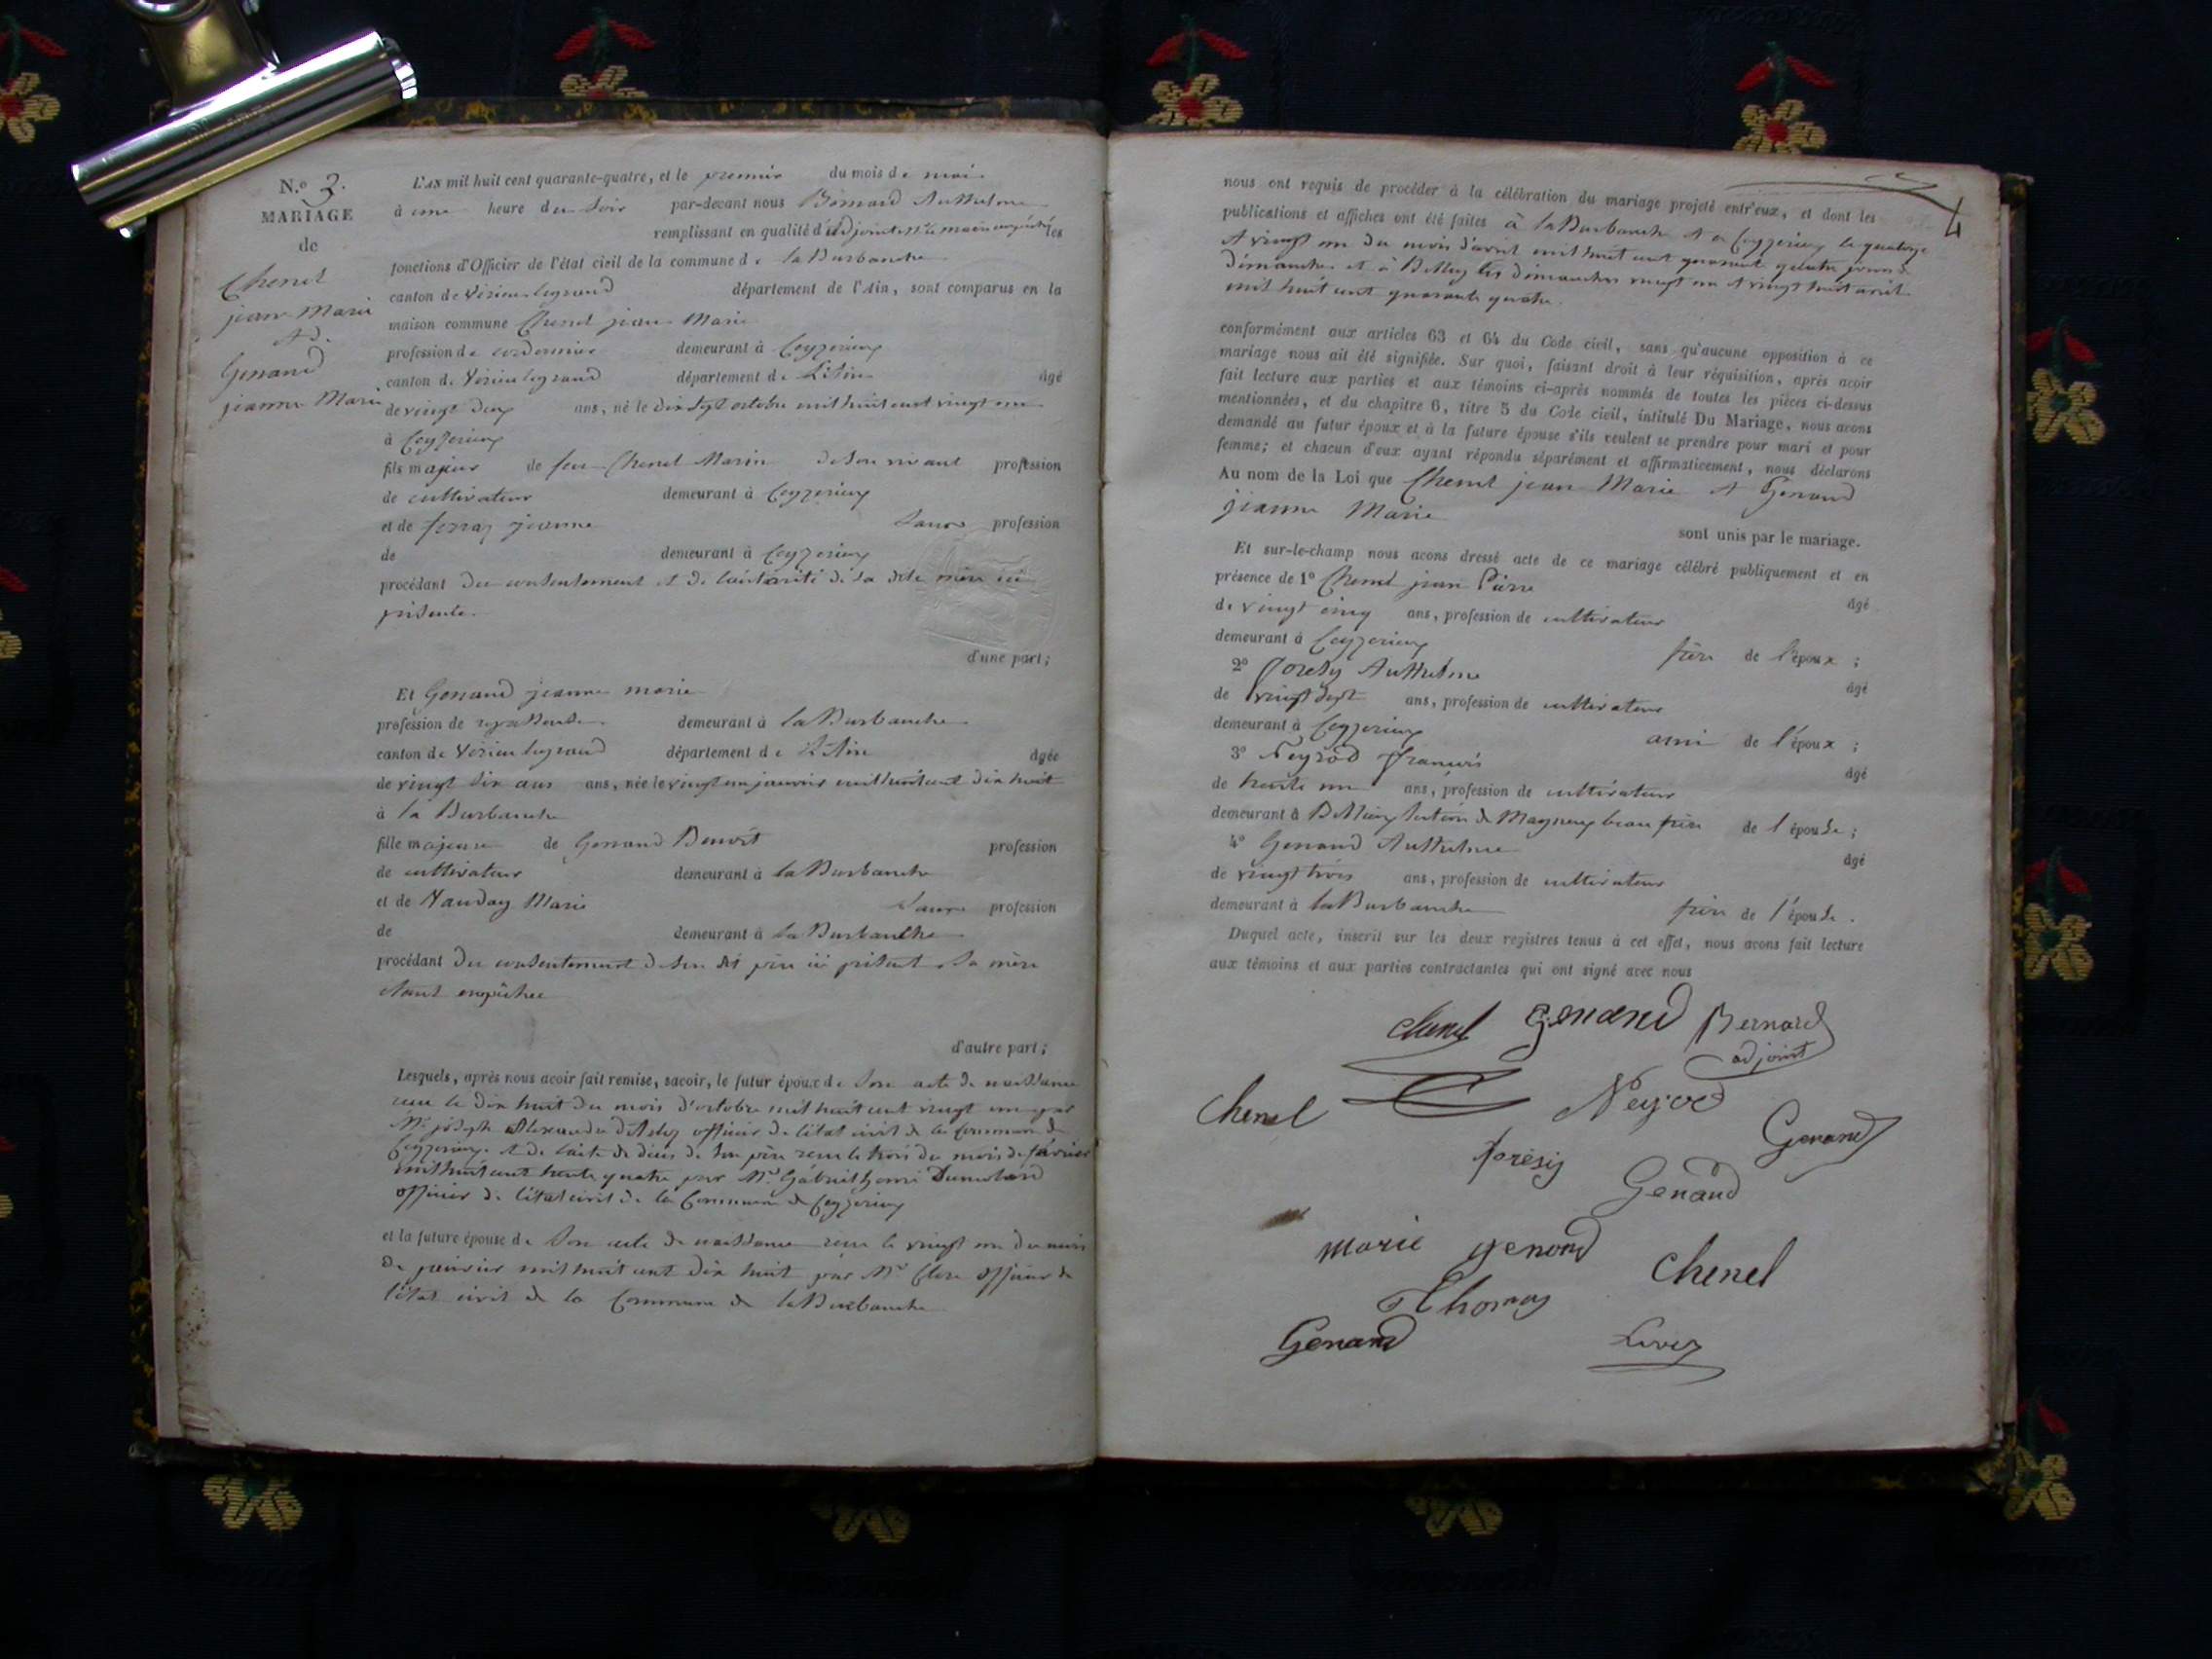 N.o 3.
MARIAGE
de
Chenel
jean Marie
et de
Genand
jeanne Marie
L'AN mil huit cent quarante-quatre, et le premier du mois de mai
à une heure du soir par-devant nous Bernard Anthelme
remplissant en qualité d'adjoint Mr le maire empêché les
fonctions d'Officier de l'état civil de la commune de la Burbanche
canton de Virieu le grand département de l'Ain, sont comparus en la
maison commune Chenel jean Marie
profession de cordonnier demeurant à Ceyzerieu
canton de Virieu le grand département de L'Ain âgé
de vingt deux ans, né le dix sept octobre mil huit cent vingt un
à Ceyzerieu
fils majeur de feu Chenel Marin de son vivant profession
de cultivateur demeurant à Ceyzerieu
et de ferraz jeanne sans profession
de demeurant à Ceyzerieu
procédant du consentement et de l'autorité de sa dite mère ici
présente.
d'une part;
Et Genand jeanne marie
profession de demeurant à la Burbanche
canton de Virieu le grand département de L'Ain âgée
de vingt six ans ans, née le vingt un janvier mil huit cent dix huit
à la Burbanche
fille majeure de Genand Benoît profession
de cultivateur demeurant à la Burbanche
et de Vauday Marie sans profession
de demeurant à la Burbanche
procédant du consentement de son dit père ici présent sa mère
étant empêchée
d'autre part;
Lesquels, après nous avoir fait remise, savoir, le futur époux de son acte de naissance
reçu le dix huit du mois d'octobre mil huit cent vingt un par
Mr joseph Alexandre officier de l'état civil de la commune de
Ceyzerieu. et de l'acte de décès de son père reçu le trois du mois de février
mil huit cent trente quatre par Mr Gabriel henri
officier de l'état civil de la Commune de Ceyzerieu
et la future épouse de son acte de naissance reçu le vingt un du mois
de janvier mil huit cent dix huit par Mr officier de
l'état civil de la Commune de la Burbanche
4
nous ont requis de procéder à la célébration du mariage projeté entr'eux, et dont les
publications et affiches ont été faites à la Burbanche et a Ceyzerieu le quatorze
et vingt un du mois d'avril mil huit cent quarante quatre jours de
dimanche et à Belley les dimanches vingt un et vingt huit avril
mil huit cent quarante quatre.
conformément aux articles 63 et 64 du Code civil, sans qu'aucune opposition à ce
mariage nous ait été signifiée. Sur quoi, faisant droit à leur réquisition, après avoir
fait lecture aux parties et aux témoins ci-après nommés de toutes les pièces ci-dessus
mentionnées, et du chapitre 6, titre 5 du Code civil, intitulé Du Mariage, nous avons
demandé au futur époux et à la future épouse s'ils veulent se prendre pour mari et pour
femme; et chacun d'eux ayant répondu séparément et affirmativement, nous déclarons
Au nom de la Loi que Chenel jean Marie et Genand
jeanne Marie
sont unis par le mariage.
Et sur-le-champ nous avons dressé acte de ce mariage célébré publiquement et en
présence de 1º Chenel jean Pierre
âgé
de vingt cinq ans, profession de cultivateur
demeurant à Ceyzerieu frère de l'époux;
2º Anthelme
âgé
de vingt sept ans, profession de cultivateur
demeurant à Ceyzerieu ami de l'époux;
3º Neyrod françois
âgé
de trente un ans, profession de cultivateur
demeurant à section de beau frère de l'épouse;
4º Genand Anthelme
âgé
de vingt trois ans, profession de cultivateur
demeurant à la Burbanche frère de l'épouse.
Duquel acte, inscrit sur les deux registres tenus à cet effet, nous avons fait lecture
aux témoins et aux parties contractantes qui ont signé avec nous
chenel Genand Bernard
adjoint
Chenel Neyrod Genand
Genand
marie genond chenel
Thomas
Genand